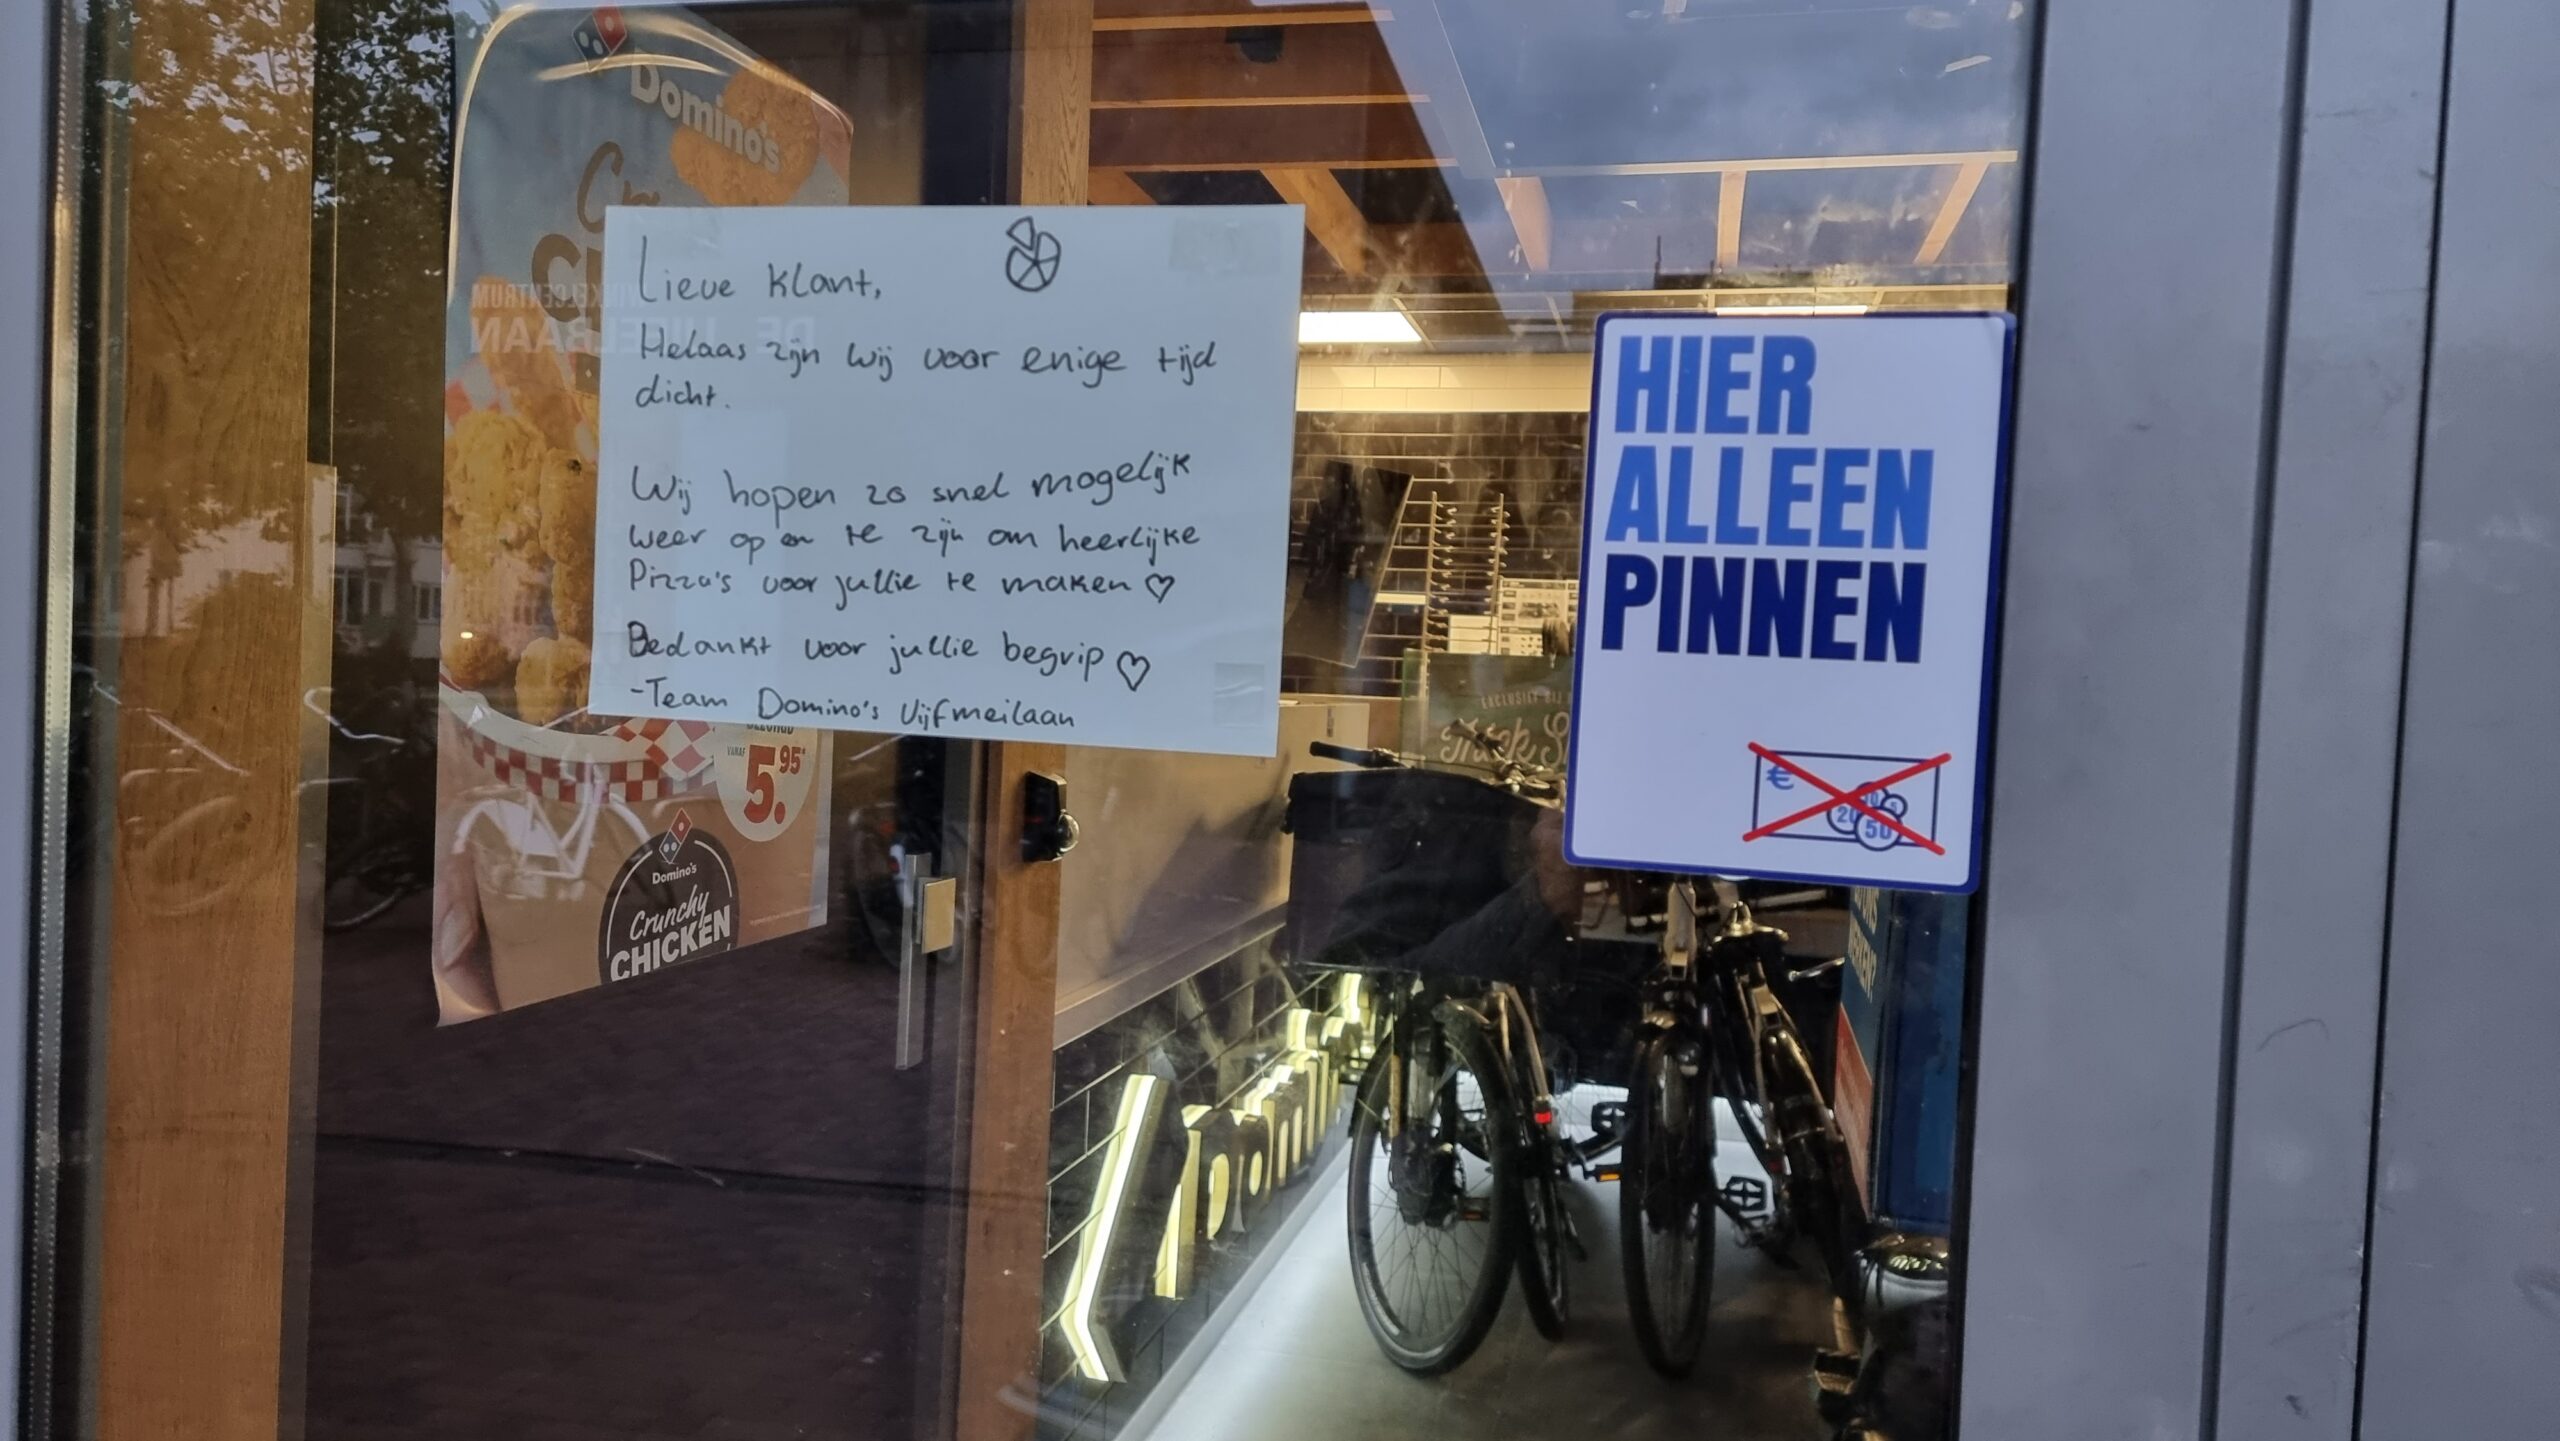 Domino's
WINKELCENTRUM
Lieve klant,
Helaas zijn wij voor enige tijd
dicht.
Wij hopen zo snel mogelijk
weer open te zijn om heerlijke
Pizza's voor jullie te maken ♡
Bedankt voor jullie begrip ♡
-Team Domino's Vijfmeilaan
HIER
ALLEEN
PINNEN
€
10
5
20
50
VANAF
5.95*
Domino's
Crunchy
CHICKEN
EXCLUSIEF BIJ